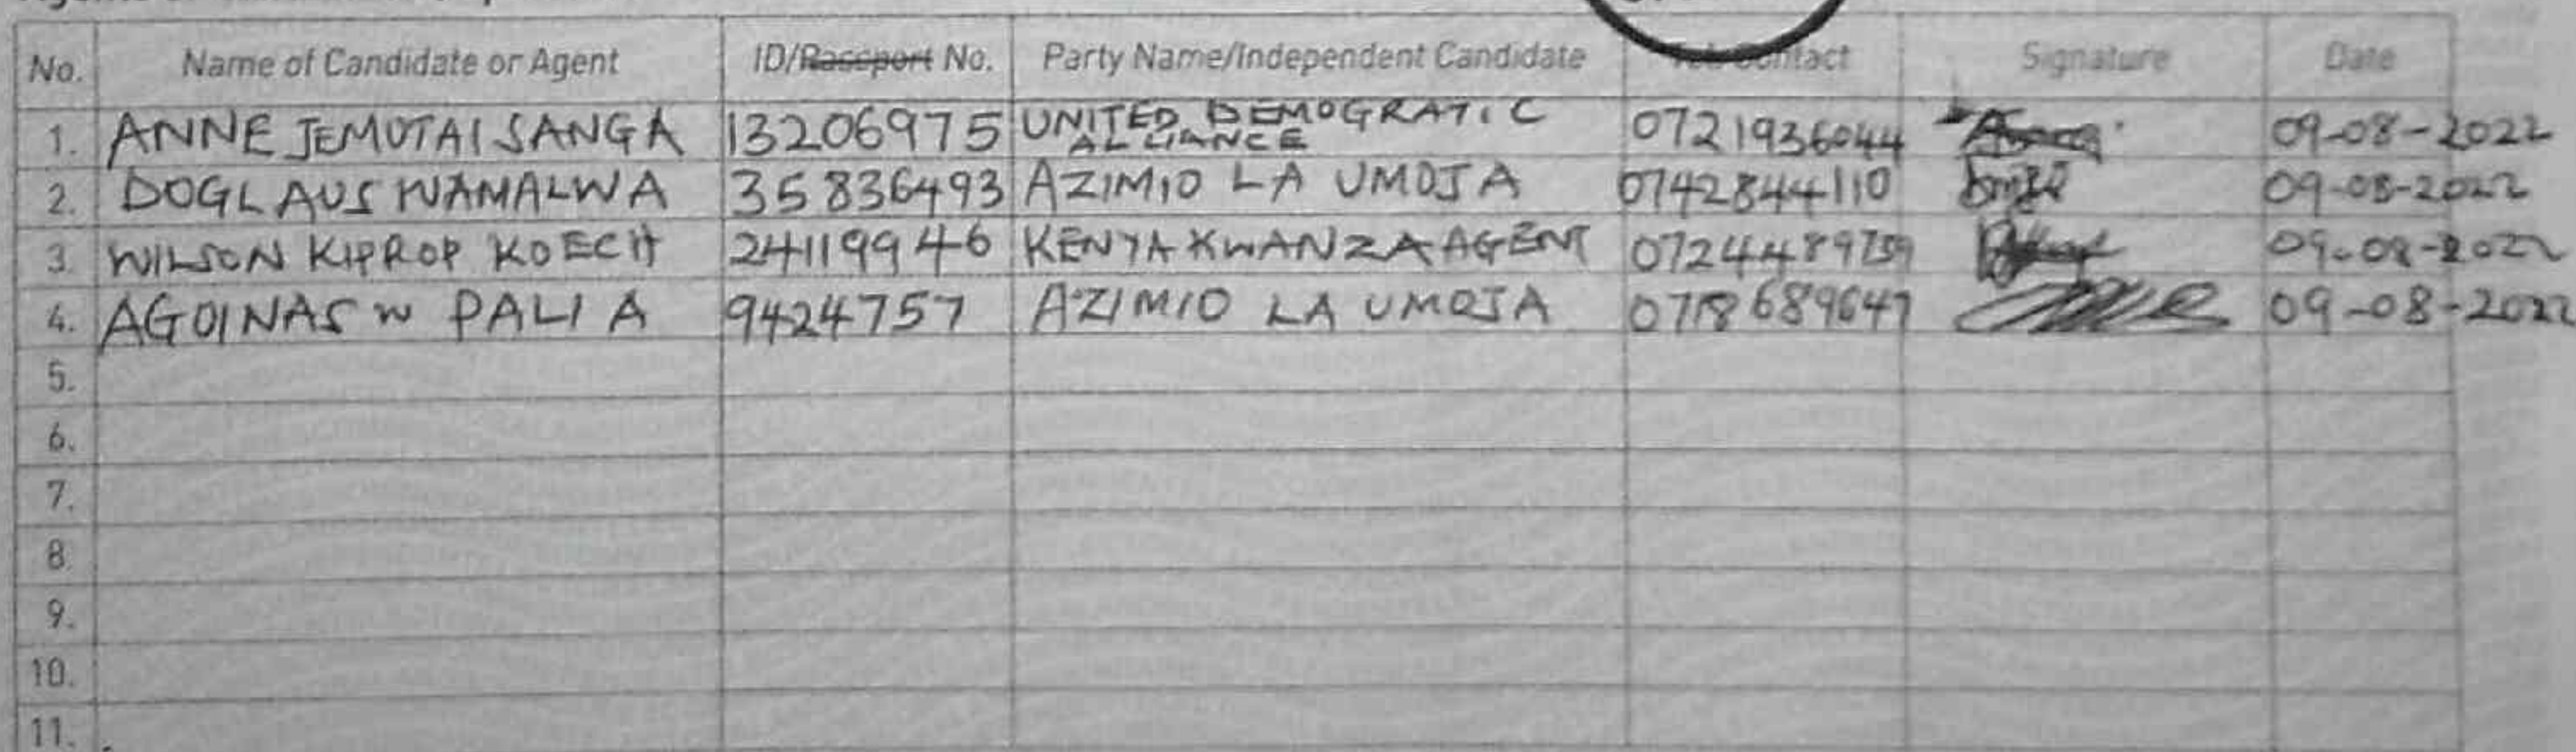 No. Name of Candidate or Agent ID/Passport No. Party Name/Independent Candidate Contact Signature Date
1. ANNE JEMUTAI SANGA 13206975 UNITED DEMOGRATIC ALLIANCE 0721936044 09-08-2022
2. DOGLAUS WAMALWA 35836493 AZIMIO LA UMOJA 0742844110 09-08-2022
3. WILSON KIPROP KOECH 24119946 KENYA KWANZA AGENT 09-08-2022
4. AGOINAS W PALIA 9424757 AZIMIO LA UMOJA 0718689647 09-08-2022
5.
6.
7.
8.
9.
10.
11.